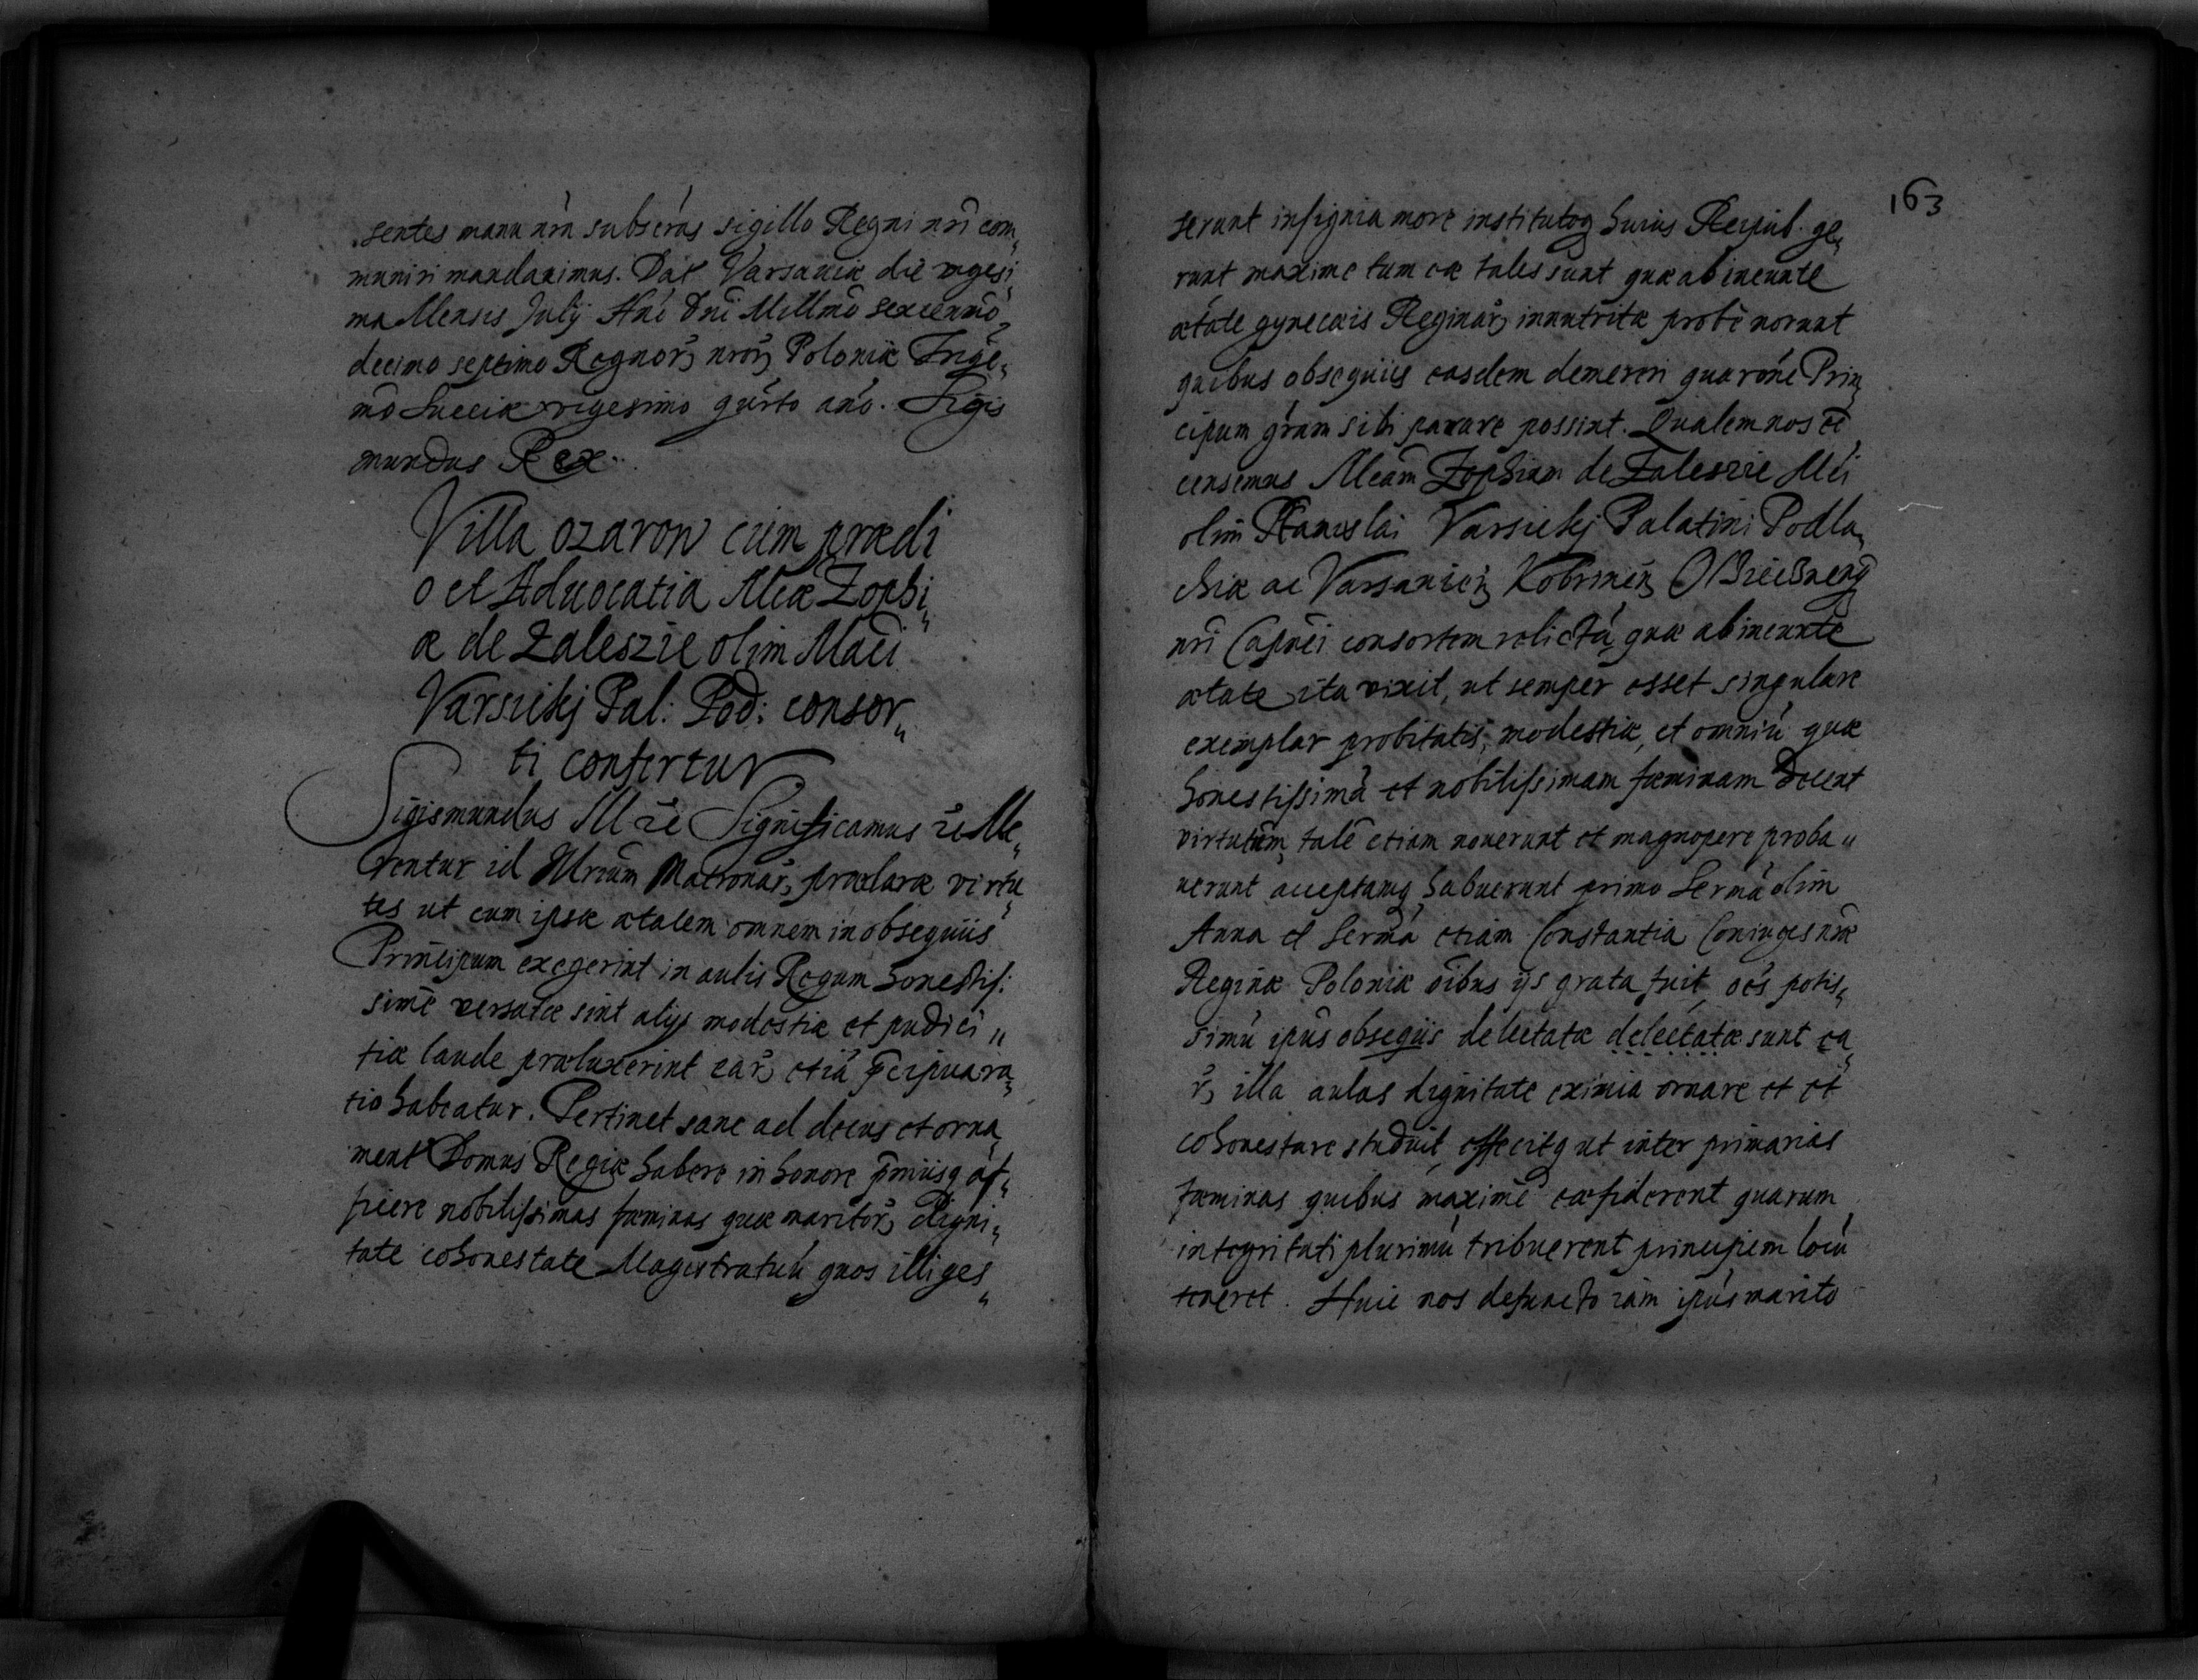 sentes manu nrã subscras sigillo Regni nri com„
muniri mandauimus. Dat Varsauiæ die vigesi„
ma Mensis July Ano Dni Millmo sexcenmo
decimo septimo Regnorʒ nrorʒ Poloniæ Trige„
mo Sueciæ vigesimo qurto ano. Sigis
mundus Rex.
Villa ozarow cum prædi
o et Aduocatia Mcæ Zophi„
æ de Zaleszie olim Maci
Varsickj Pal: Pod: consor„
ti confertur
Sigismundus III etc Significamus etc Me„
rentur id Illrium Matronarʒ præclaræ virtu„
tes ut cum ipsæ ætatem omnem in obsequiis
Principum exegerint in aulis Regum honestis:
sime versatæ sint alijs modestiæ et pudici„
tiæ laude præluxerint earʒ etiã pcipua ra„
tio habeatur. Pertinet sane ad decus et orna„
ment Domus Regiæ habere in honore pmiisq af„
ficere nobilissimas fæminas quæ maritorʒ digni„
tate cohonestate Magistratuũ quos illi ges„
163
serunt insignia more institutoq huius Reipub. ge„
runt maxime tum eæ tales sunt quæ ab ineunte
ætate gynecæis Reginarʒ innutritæ probe norunt
quibus obsequiis easdem demereri qua rone Prin„
cipum gram sibi parare possint. Qualem nos ee
censemus Mcam Zophiam de Zaleszie Mci
olim Stanislai Varsickj Palatini Podla„
chiæ ac Varsauien Kobrinen
nri Capnei consortem relictã, quæ ab ineunte
ætate ita vixit, ut semper esset singulare
exemplar probitatis, modestiæ, et omniũ quæ
honestissimã et nobilissimam fæminam decent
virtutũm, talẽ etiam nouerunt et magnopere proba„
uerunt acceptamq habuerunt primo Serma olim
Anna et Serma etiam Constantia Coniuges nræ
Reginæ Poloniæ oibus ijs grata fuit, oes potis„
simũ ipius obseqiis delectatæ delectatæ sunt ea„
rʒ illa aulas dignitate eximia ornare et et
cohonestare studuit, effecitq ut inter primarias
fæminas quibus maxime cæfiderent quarum
integritati plurimũ tribuerent principem locũ
teneret. Huic nos defuncto iam ipius marito